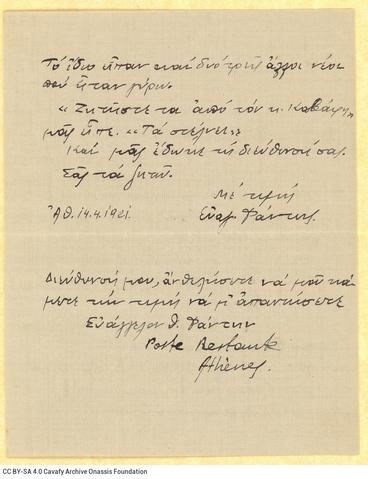 Τὸ ἴδιο εἶπαν καὶ δυὸ τρεῖς ἄλλοι νέοι
ποὺ ἦταν γύρω.
«Ζητῆστε τα ἀπὸ τὸν κ. Καβάφη»
μᾶς εἶπε. «Τὰ στέλνει»
Καὶ μᾶς ἔδωσε τὴ διεύθυνσή σας.
Σᾶς τὰ ζητῶ.
Μὲ τιμὴ
Ἀθ. 14.4.1921. Εὐαγ. Φάντης.
Διεύθυνσή μου, ἂν θελήσετε νὰ μοῦ κά-
μετε τὴν τιμὴ νὰ μ' ἀπαντήσετε
Εὐάγγελον Θ. Φάντην
Poste Restante
Athènes.
CC BY-SA 4.0 Cavafy Archive Onassis Foundation